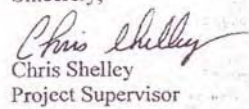 Sincerely,
Chris Shelley
Chris Shelley
Project Supervisor